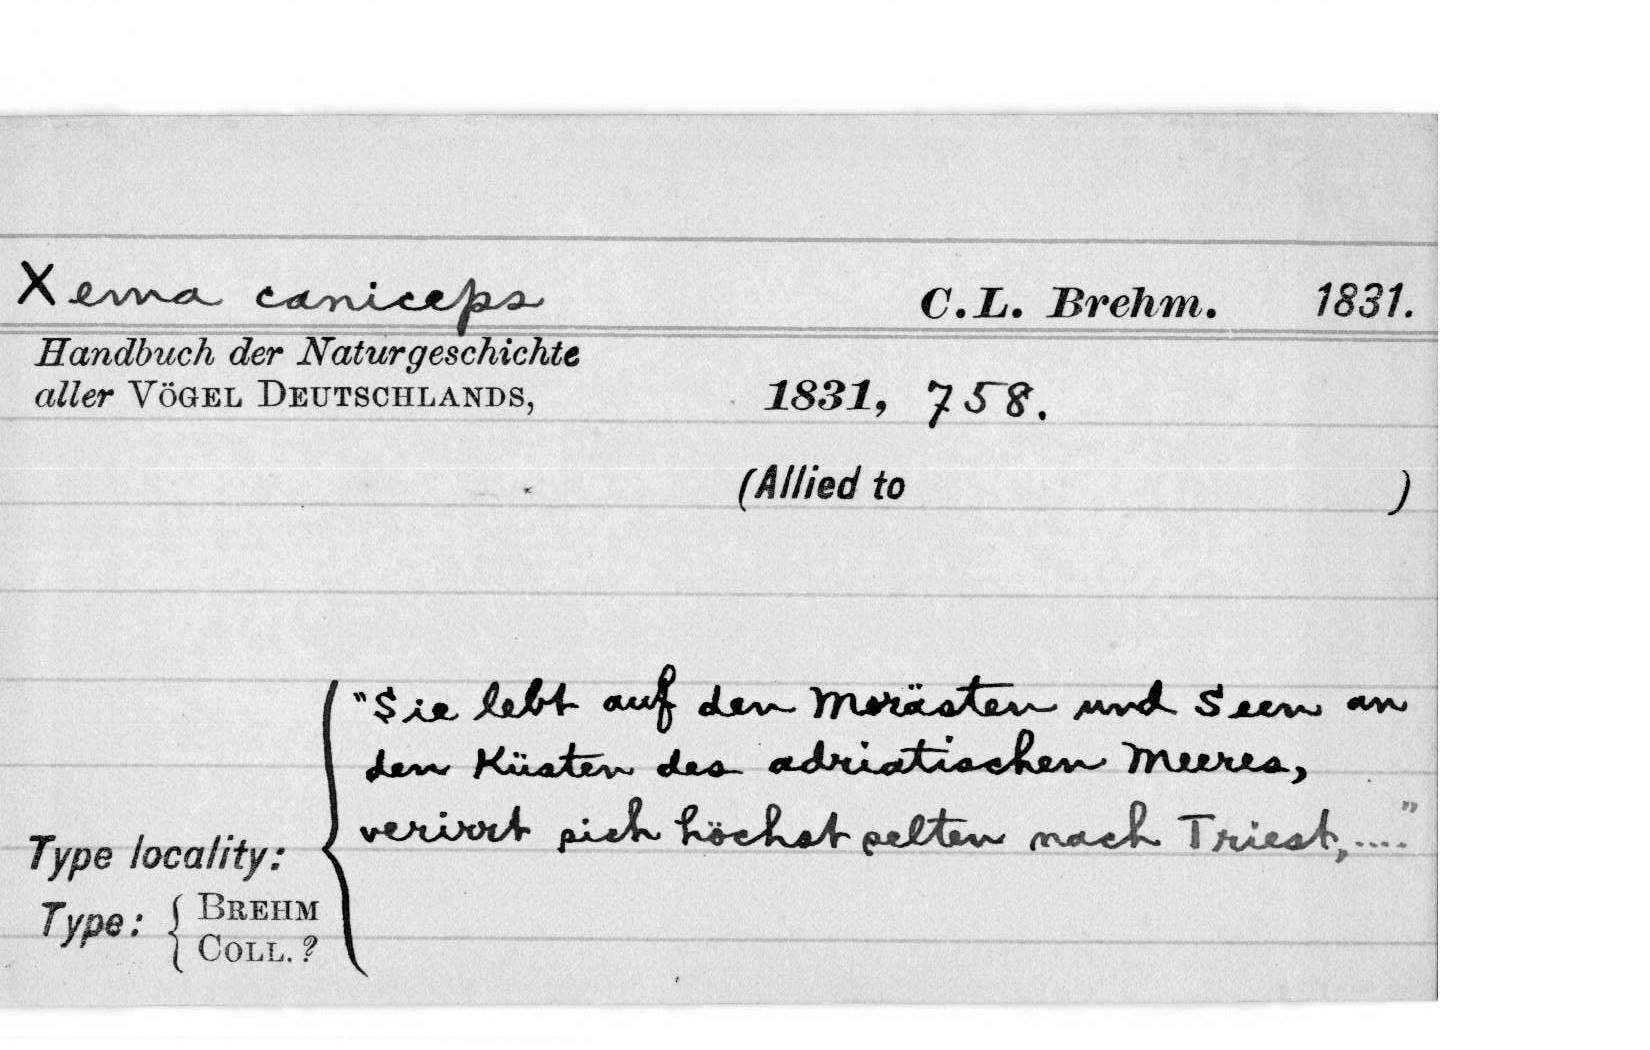 Xema caniceps C. L. Brehm. 1831.
Handbuch der Naturgeschichte
aller VÖGEL DEUTSCHLANDS, 1831, 758.
(Allied to )
"Sie lebt auf den Morästen und Seen an
den Küsten des adriatischen Meeres,
verirrt sich höchst selten nach Triest,...."
Type locality:
Type: { BREHM
COLL. ?